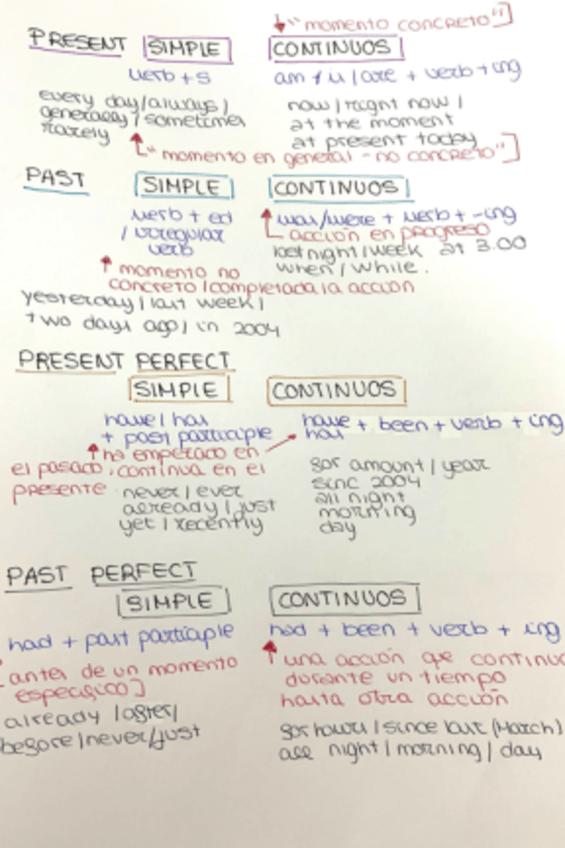 "momento concreto"]
PRESENT SIMPLE CONTINUOS
verb + s am / is / are + verb + ing
every day / always / now / right now /
generally / sometimes at the moment
rarely at present today
"momento en general - no concreto"]
PAST SIMPLE CONTINUOS
verb + ed was/were + verb + -ing
/ irregular acción en progreso
verb last night / week at 3.00
momento no when / while.
concreto / completada la acción
yesterday / last week /
two days ago / in 2004
PRESENT PERFECT
SIMPLE CONTINUOS
have / has have + been + verb + ing
+ past participle has
ha empezado en
el pasado, continua en el for amount / year
presente never / ever sinc 2004
already / just all night
yet / recently morning
day
PAST PERFECT
SIMPLE CONTINUOS
had + past participle had + been + verb + ing
[antes de un momento una acción que continua
especifico] durante un tiempo
hasta otra acción
already / after /
before / never / just for hours / since last (March)
all night / morning / day